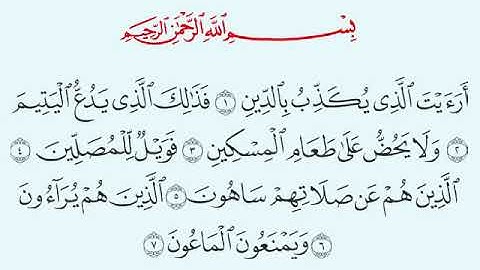 بِسْمِ ٱللَّهِ ٱلرَّحْمَٰنِ ٱلرَّحِيمِ
أَرَءَيْتَ ٱلَّذِى يُكَذِّبُ بِٱلدِّينِ ١ فَذَٰلِكَ ٱلَّذِى يَدُعُّ ٱلْيَتِيمَ
٢ وَلَا يَحُضُّ عَلَىٰ طَعَامِ ٱلْمِسْكِينِ ٣ فَوَيْلٌ لِّلْمُصَلِّينَ ٤
ٱلَّذِينَ هُمْ عَن صَلَاتِهِمْ سَاهُونَ ٥ ٱلَّذِينَ هُمْ يُرَآءُونَ
٦ وَيَمْنَعُونَ ٱلْمَاعُونَ ٧